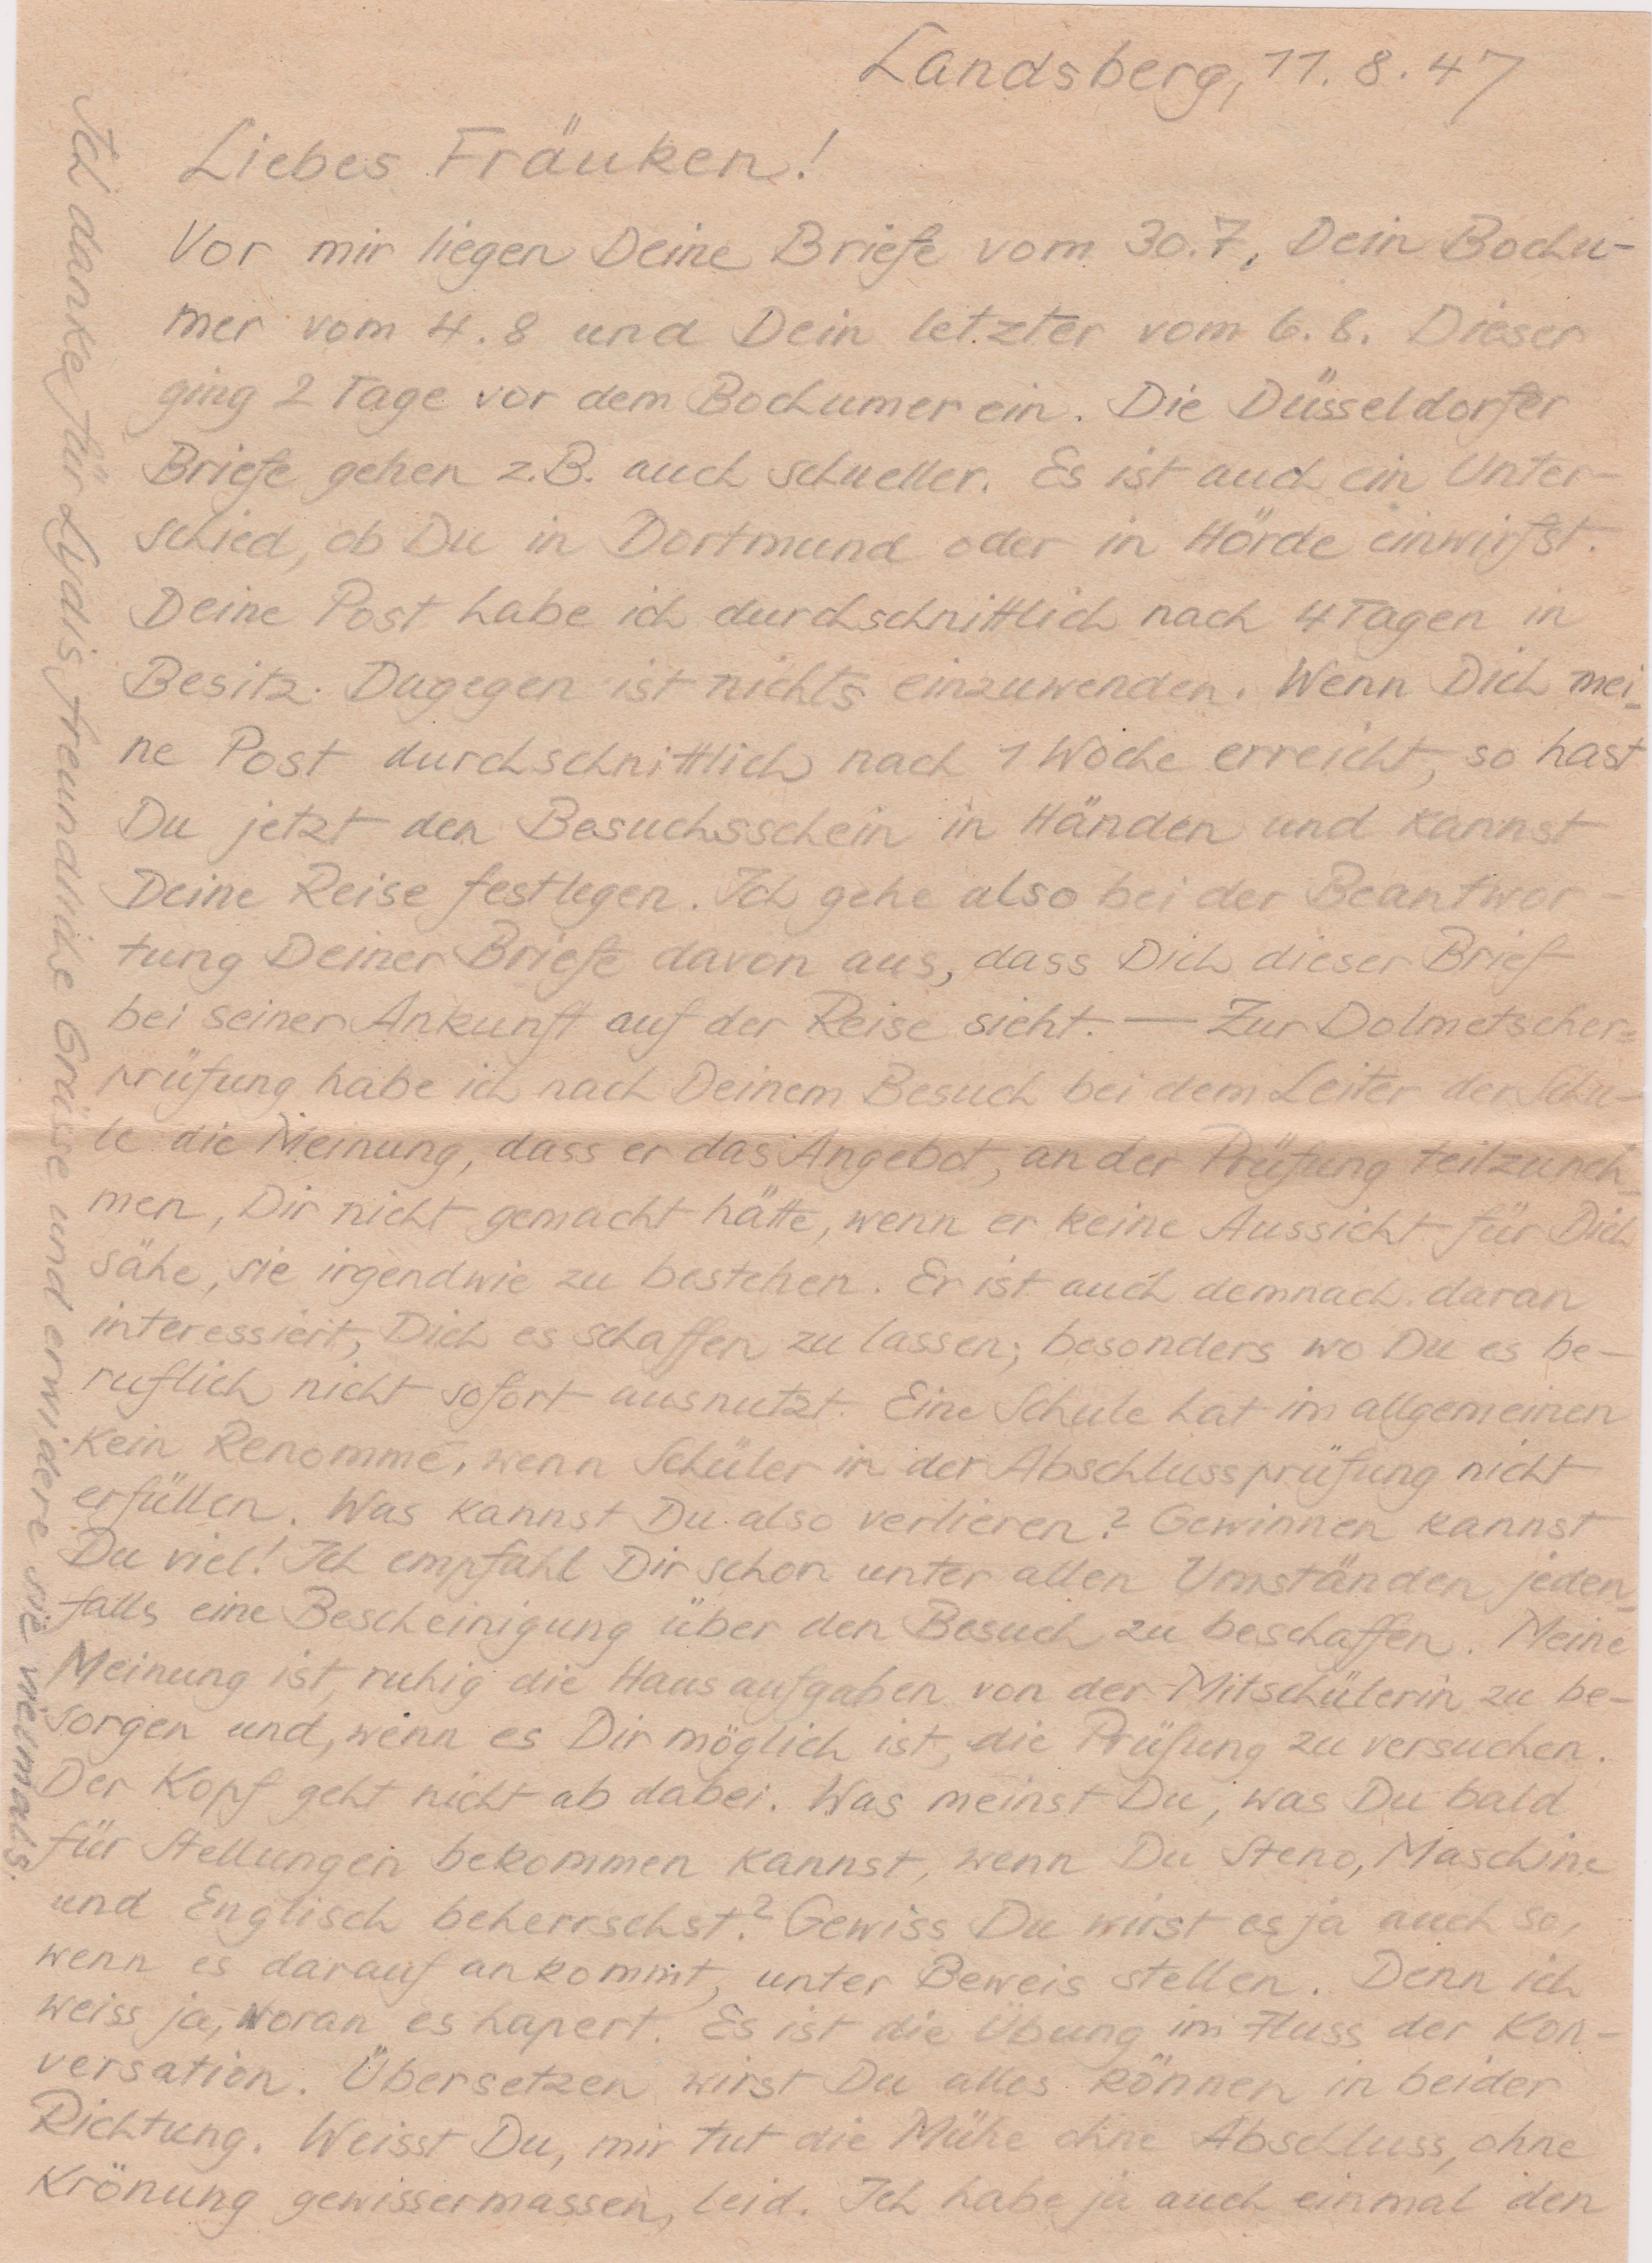 Landsberg, 11.8.47
Liebes Fräuken!
Vor mir liegen Deine Briefe vom 30.7, Dein Bochu-
mer vom 4.8 und Dein letzter vom 6.8. Dieser
ging 2 Tage vor dem Bochumer ein. Die Düsseldorfer
Briefe gehen z.B. auch schneller. Es ist auch ein Unter-
schied, ob Du in Dortmund oder in Hörde einwirfst.
Deine Post habe ich durchschnittlich nach 4 Tagen in
Besitz. Dagegen ist nichts einzuwenden. Wenn Dich mei-
ne Post durchschnittlich nach 1 Woche erreicht, so hast
Du jetzt den Besuchsschein in Händen und kannst
Deine Reise festlegen. Ich gehe also bei der Beantwor-
tung Deiner Briefe davon aus, dass Dich dieser Brief
bei seiner Ankunft auf der Reise sieht. — Zur Dolmetscher=
prüfung habe ich nach Deinem Besuch bei dem Leiter der Schu-
le die Meinung, dass er das Angebot, an der Prüfung teilzuneh-
men, Dir nicht gemacht hätte, wenn er keine Aussicht für Dich
sähe, sie irgendwie zu bestehen. Er ist auch demnach daran
interessiert, Dich es schaffen zu lassen; besonders wo Du es be-
ruflich nicht sofort ausnutzt. Eine Schule hat im allgemeinen
kein Renommé, wenn Schüler in der Abschlussprüfung nicht
erfüllen. Was kannst Du also verlieren? Gewinnen kannst
Du viel! Ich empfahl Dir schon unter allen Umständen jeden-
falls eine Bescheinigung über den Besuch zu beschaffen. Meine
Meinung ist, ruhig die Hausaufgaben von der Mitschülerin zu be-
sorgen und, wenn es Dir möglich ist, die Prüfung zu versuchen.
Der Kopf geht nicht ab dabei. Was meinst Du, was Du bald
für Stellungen bekommen kannst, wenn Du Steno, Maschine
und Englisch beherrschst? Gewiss Du wirst es ja auch so,
wenn es darauf ankommt, unter Beweis stellen. Denn ich
weiss ja, woran es hapert. Es ist die Übung im Fluss der Kon-
versation. Übersetzen wirst Du alles können in beider
Richtung. Weisst Du, mir tut die Mühe ohne Abschluss, ohne
Krönung gewissermassen, leid. Ich habe ja auch einmal den
Ich danke für Lydis freundliche Grüsse und erwidere sie vielmals.